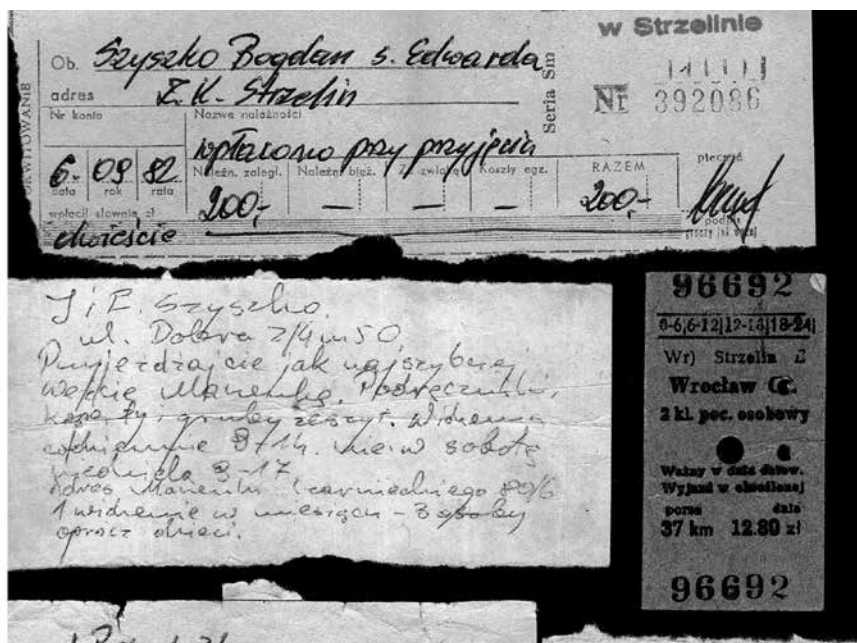 w Strzelinie
Ob. Szyszko Bogdan s. Edwarda
adres Z.K. Strzelin
Seria Sm
Nr 392086
Nr konta Nazwa należności
wpłacono przy przyjęciu
6. 09 82
data rok rata
Należn. zaległ. Należn. bież. Za zwłokę Koszty egz. RAZEM
200,- — — — 200,-
wpłacił słownie zł
dwieście
J i E. Szyszko
ul. Dobra 2/4 m 50
Przyjeżdżajcie jak najszybciej
weźcie Marienkę. Podręczniki,
i gruby zeszyt. Widzenia
codziennie 9/14. nie w sobotę
niedziela 9-17
Adres Marienki Czarnieckiego 80/6
1 widzenie w miesiącu - 3 osoby
oprócz dzieci.
96692
0-6|6-12|12-18|18-24|
Wr) Strzelin
Wrocław Gł.
2 kl. poc. osobowy
Ważny w dniu datow.
Wyjazd w określonej
porze dnia
37 km 12.80 zł
96692